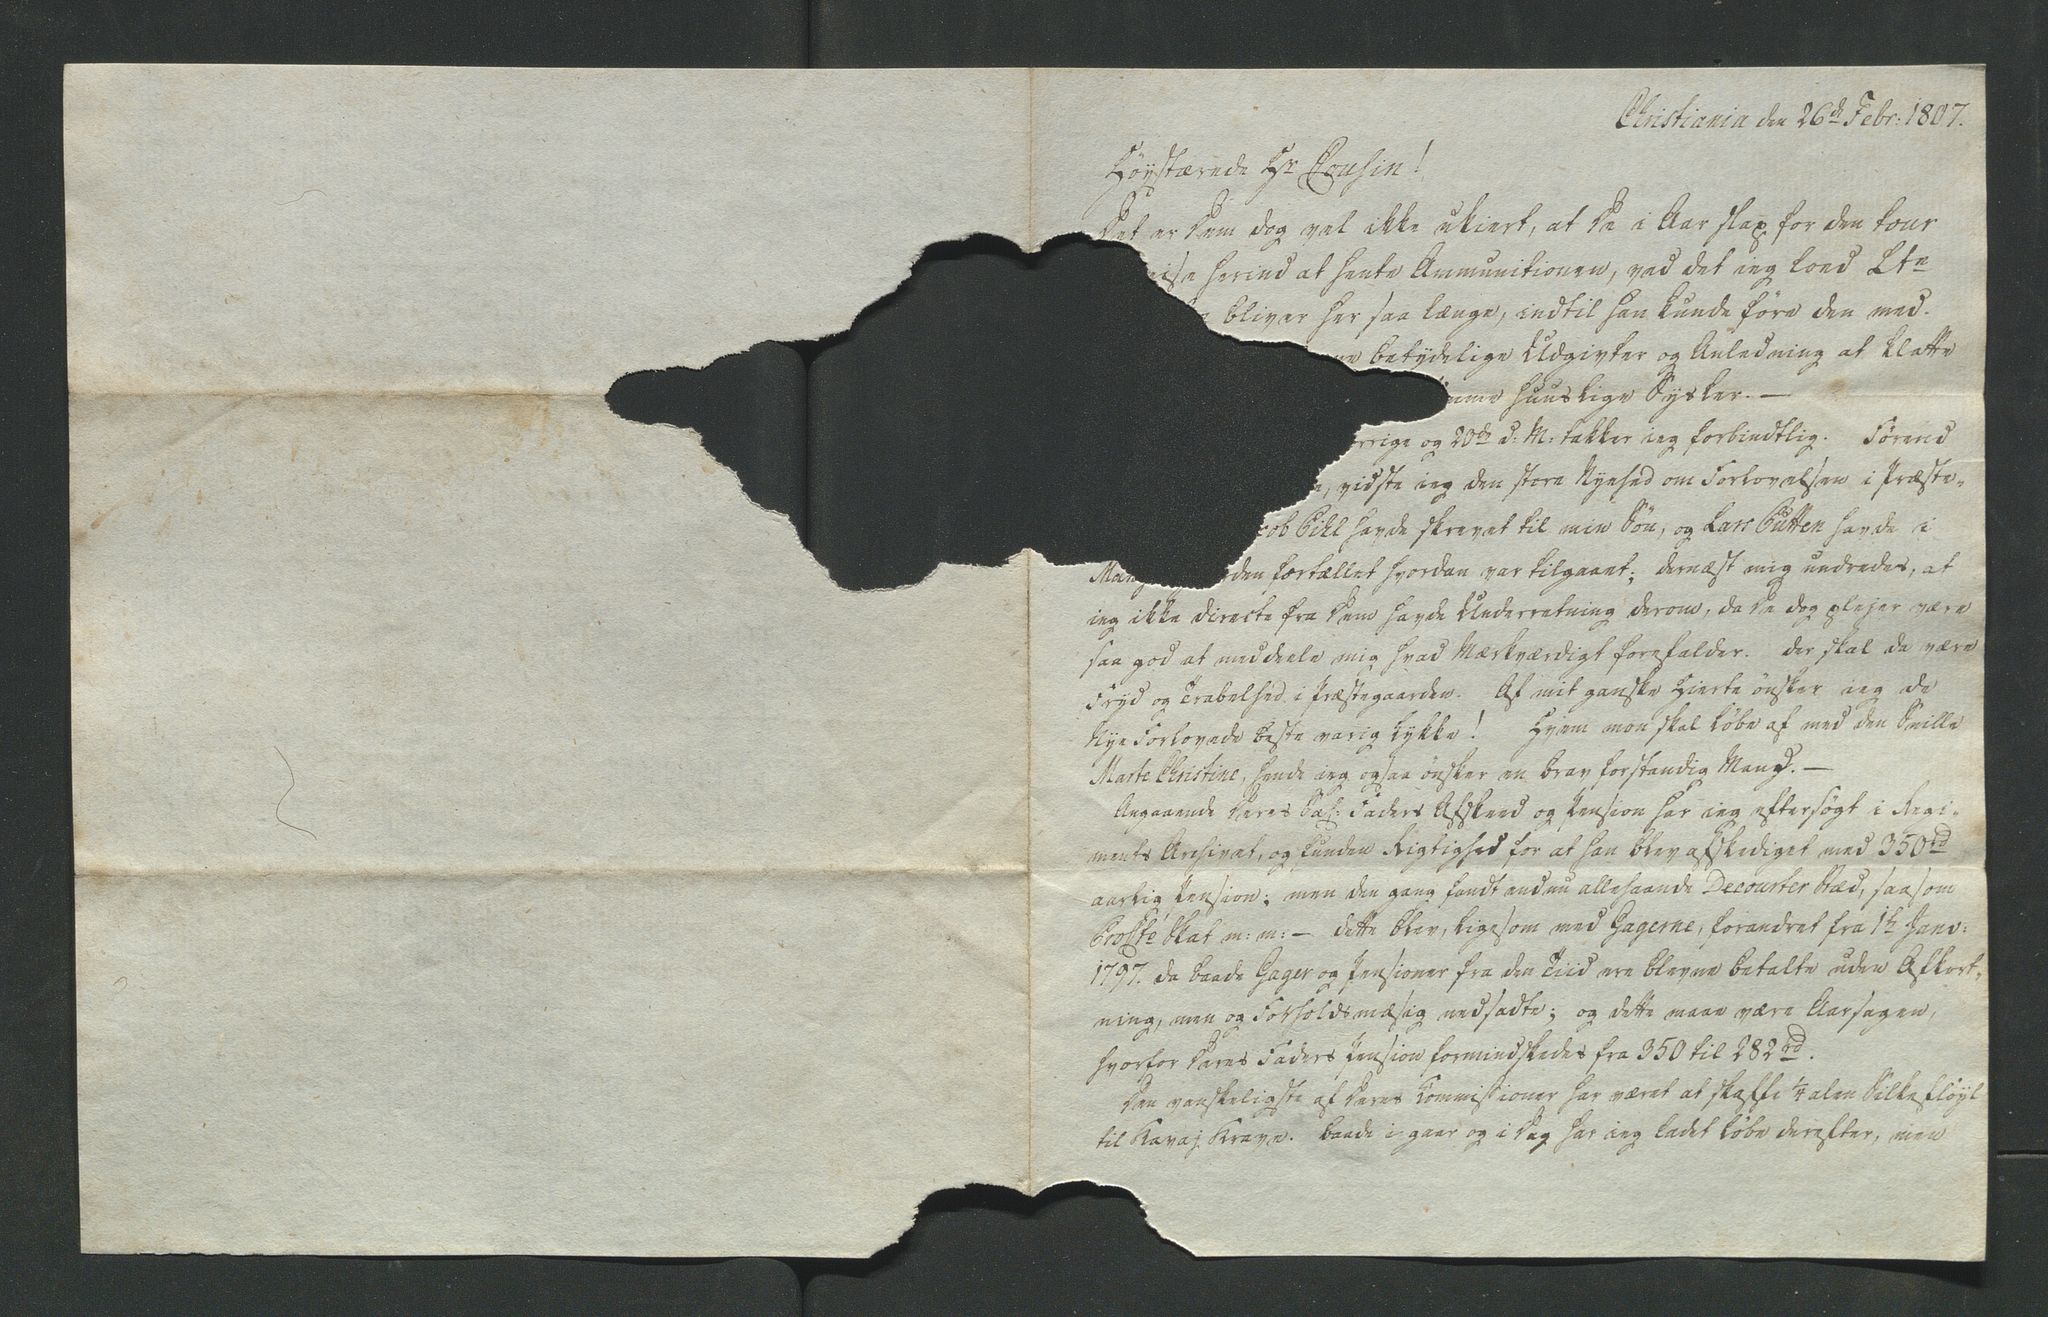 Christiania den 26de Febr: 1807.
Høystærede Hr Cousin!
Det er Dem dog vel ikke ukiert, at De i Aar slap for den tour
herind at hente Ammunitionen, ved det ieg loed Ltn
bliver her saa længe, indtil han kunde føre den med.
betydelige Udgivter og Anledning at klatte
huuslige Sysler. —
forrige og 20de d: M: takker ieg forbindtlig. Førend
vidste ieg den store Nyehed om Forlovelsen i Præste-
Jacob Pihl havde skrevet til min Søn, og Lars Bütten havde i
fortællet hvordan var tilgaaet; dernæst mig undredes, at
ieg ikke directe fra Dem havde Underretning derom, da De dog plejer være
saa god at meddeele mig hvad Mærkværdigt forefalder. der skal da være
Fryd og Trabelhed i Præstegaarden. Af mit ganske Hierte ønsker ieg de
Nye Forlovede beste varig Lykke! Hvem mon skal løbe af med den Snille
Marte Christine, hende ieg ogsaa ønsker en brav forstandig Mand. —
Angaaende Deres Sal: Faders Afskeed og Pension har ieg eftersøgt i Regi-
ments Archivet, og funden Rigtighed for at han blev afskediget med 350rd
aarlig Pension; men den gang fandt endnu allehaande Decourter Sted, saasom
Skat m: m: — dette blev, ligesom med Gagerne, forandret fra 1te Janv:
1797. da baade Gager og Pensioner fra den Tiid ere blevne betalte uden Afkort-
ning, men og Forholdsmæsig nedsadte; og dette maae være Aarsagen,
hvorfor Deres Faders Pension formindskedes fra 350 til 282rd.
Den vanskeligste af Deres Commissioner har været at skaffe 1/4 alen Silkefløyl
til Kavaj Krave. baade i gaar og i Dag har ieg ladet løbe derefter, men